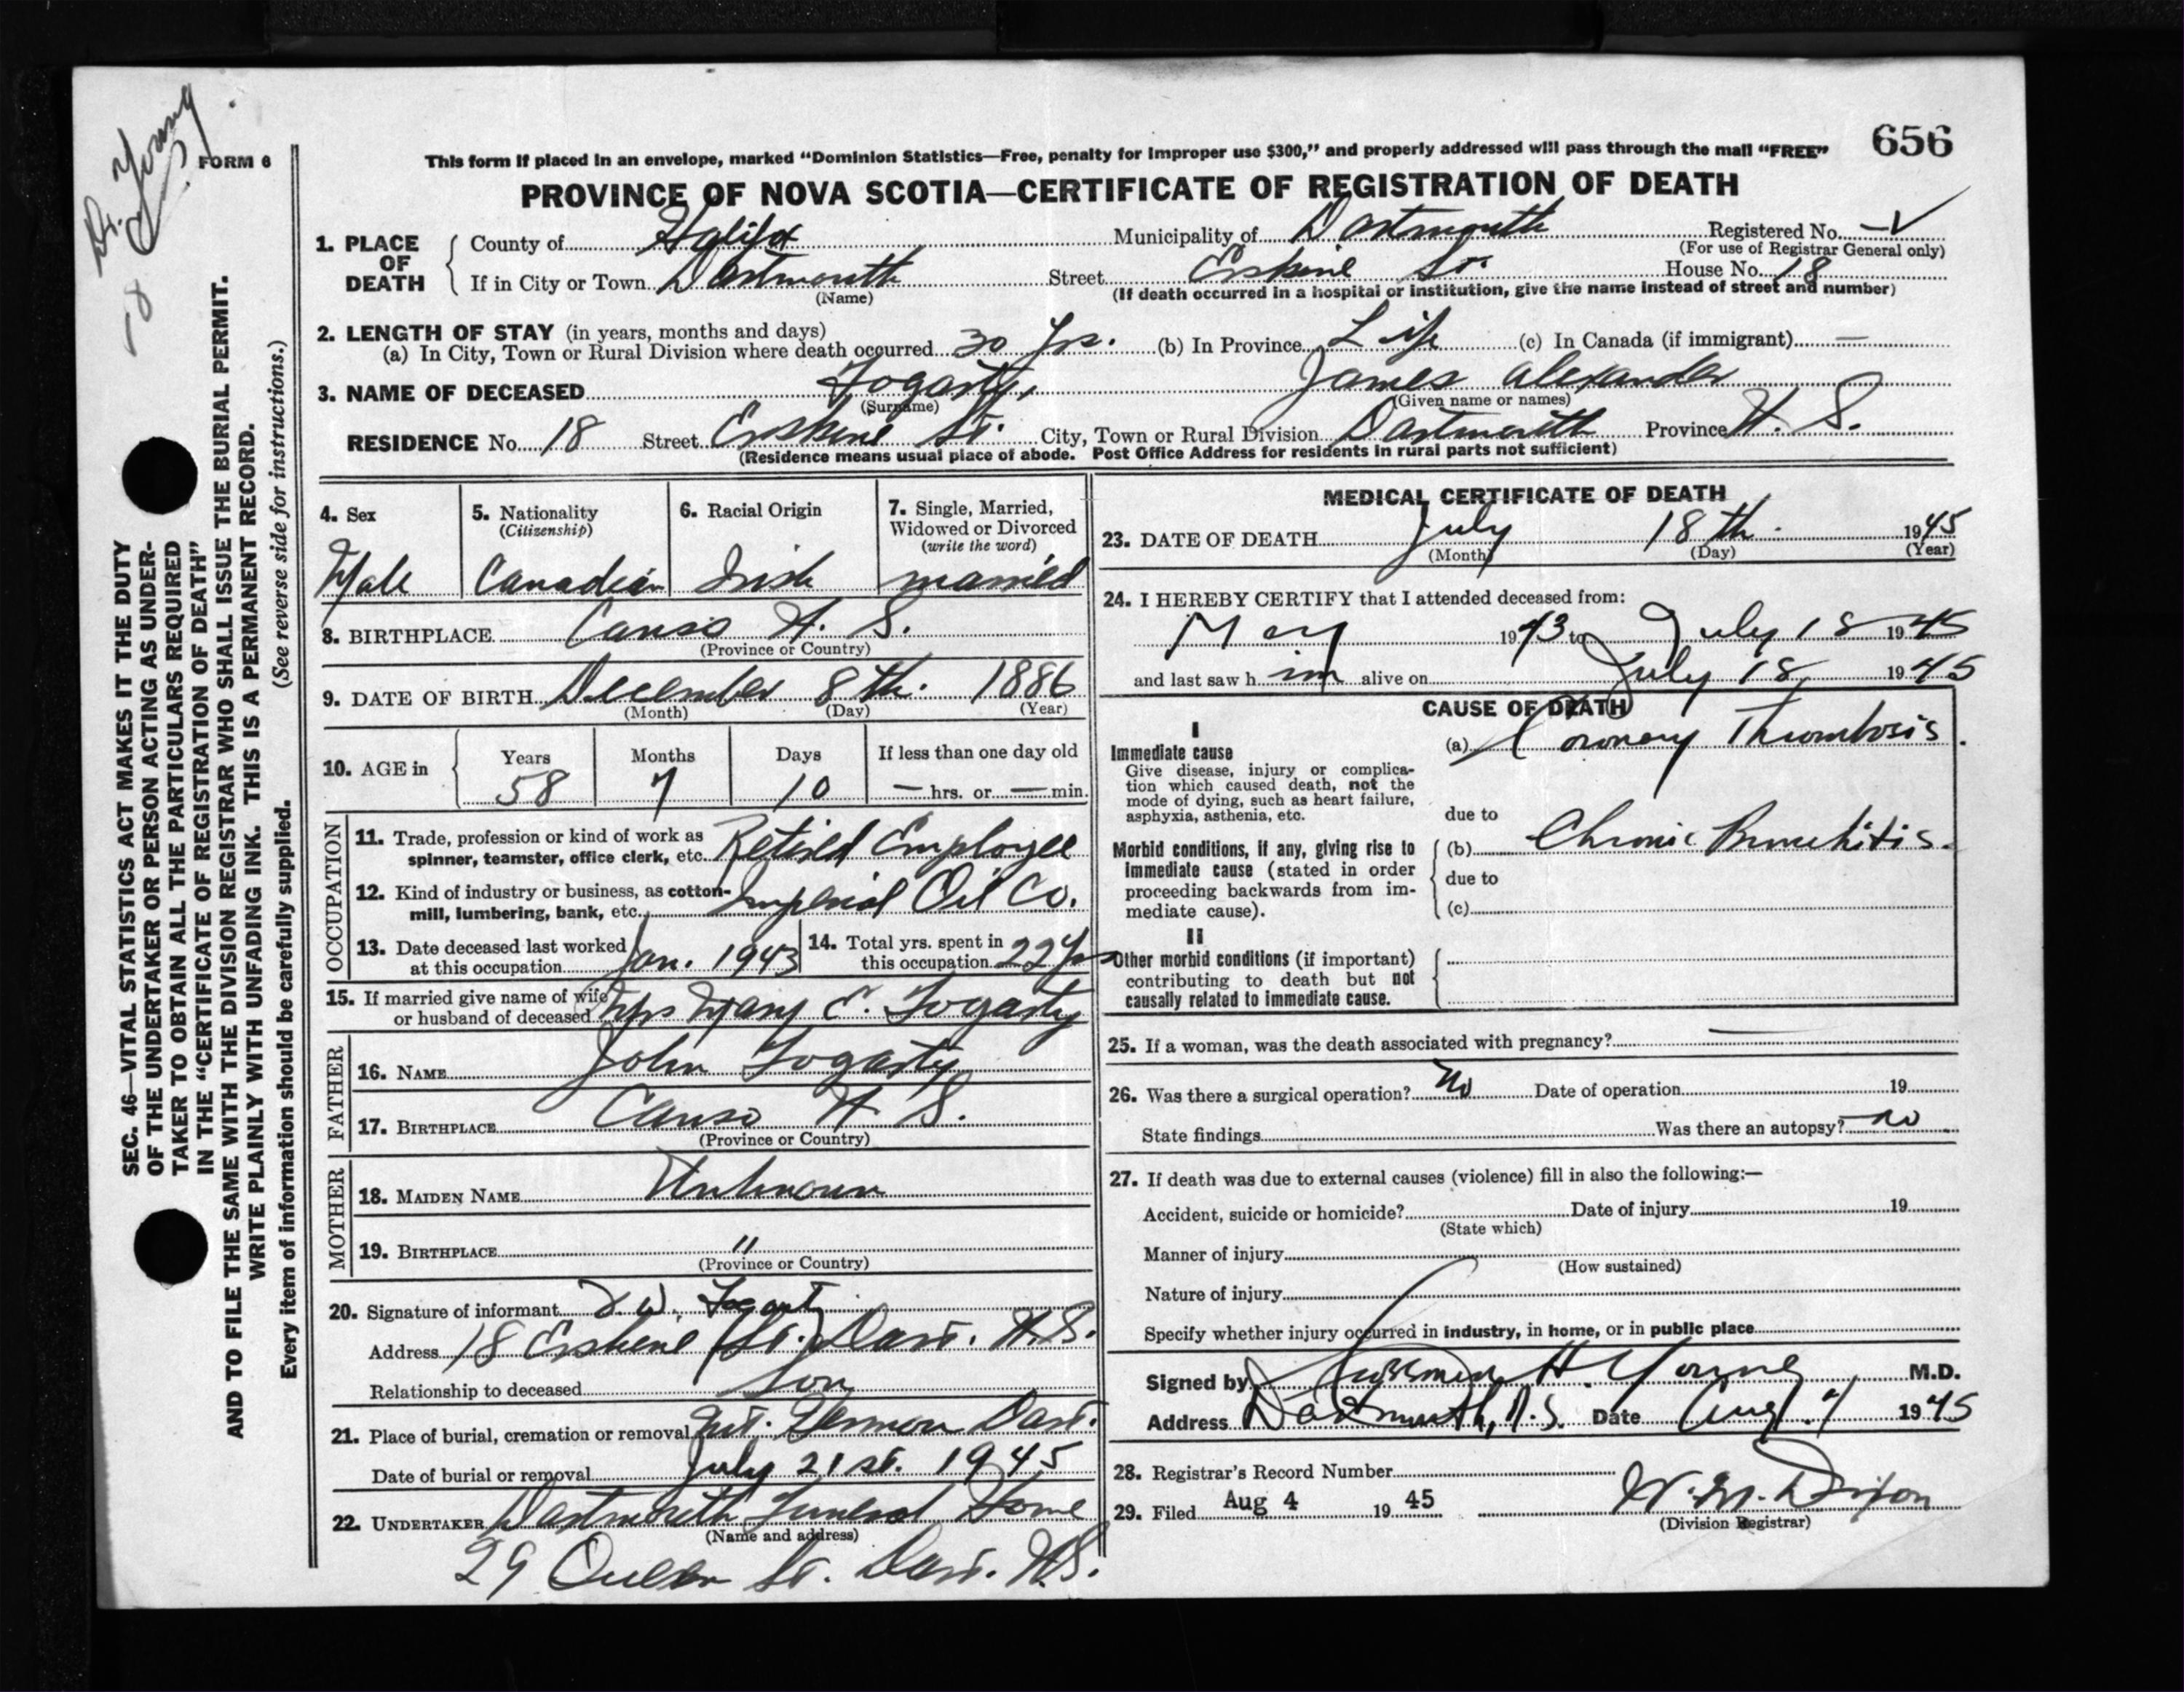 Dr. Young
FORM 6
656
This form if placed in an envelope, marked “Dominion Statistics—Free, penalty for improper use $300,” and properly addressed will pass through the mail “FREE”
PROVINCE OF NOVA SCOTIA—CERTIFICATE OF REGISTRATION OF DEATH
1. PLACE OF DEATH
County of Halifax Municipality of Dartmouth Registered No.
(For use of Registrar General only)
If in City or Town Dartmouth Street Erskine St. House No. 18
(Name) (If death occurred in a hospital or institution, give the name instead of street and number)
2. LENGTH OF STAY (in years, months and days)
(a) In City, Town or Rural Division where death occurred 30 Yrs. (b) In Province Life (c) In Canada (if immigrant) —
3. NAME OF DECEASED Fogarty, James Alexander
(Surname) (Given name or names)
RESIDENCE No. 18 Street Erskine St. City, Town or Rural Division Dartmouth Province N. S.
(Residence means usual place of abode. Post Office Address for residents in rural parts not sufficient)
4. Sex 5. Nationality (Citizenship) 6. Racial Origin 7. Single, Married, Widowed or Divorced (write the word)
Male Canadian Irish married
8. BIRTHPLACE Canso N. S.
(Province or Country)
9. DATE OF BIRTH December 8th. 1886
(Month) (Day) (Year)
10. AGE in Years Months Days If less than one day old
58 7 10 — hrs. or — min.
OCCUPATION
11. Trade, profession or kind of work as spinner, teamster, office clerk, etc. Retired Employee
12. Kind of industry or business, as cotton-mill, lumbering, bank, etc. Imperial Oil Co.
13. Date deceased last worked at this occupation Jan. 1943
14. Total yrs. spent in this occupation 22 Yrs
15. If married give name of wife or husband of deceased Mrs Mary E. Fogarty
FATHER
16. NAME John Fogarty
17. BIRTHPLACE Canso N. S.
(Province or Country)
MOTHER
18. MAIDEN NAME Unknown
19. BIRTHPLACE "
(Province or Country)
20. Signature of informant W. Fogarty
Address 18 Erskine St. Dart. N.S.
Relationship to deceased Son
21. Place of burial, cremation or removal Mt. Hermon Dart.
Date of burial or removal July 21st. 1945
22. UNDERTAKER Dartmouth Funeral Home
(Name and address)
29 Queen St. Dart. N.S.
MEDICAL CERTIFICATE OF DEATH
23. DATE OF DEATH July 18th. 1945
(Month) (Day) (Year)
24. I HEREBY CERTIFY that I attended deceased from:
May 1943 to July 18 1945
and last saw him alive on July 18, 1945
CAUSE OF DEATH
I
Immediate cause (a) Coronary Thrombosis.
Give disease, injury or complica-
tion which caused death, not the
mode of dying, such as heart failure,
asphyxia, asthenia, etc.
due to
Morbid conditions, if any, giving rise to (b) Chronic Bronchitis.
immediate cause (stated in order
due to
proceeding backwards from im-
mediate cause). (c)
II
Other morbid conditions (if important)
contributing to death but not
causally related to immediate cause.
25. If a woman, was the death associated with pregnancy? —
26. Was there a surgical operation? No Date of operation 19
State findings Was there an autopsy? no
27. If death was due to external causes (violence) fill in also the following:—
Accident, suicide or homicide? Date of injury 19
(State which)
Manner of injury
(How sustained)
Nature of injury
Specify whether injury occurred in industry, in home, or in public place
Signed by H. Young M.D.
Address Dartmouth, N.S. Date Aug. 1945
28. Registrar's Record Number
29. Filed Aug 4 1945 W. M. Dixon
(Division Registrar)
SEC. 46—VITAL STATISTICS ACT MAKES IT THE DUTY
OF THE UNDERTAKER OR PERSON ACTING AS UNDER-
TAKER TO OBTAIN ALL THE PARTICULARS REQUIRED
IN THE “CERTIFICATE OF REGISTRATION OF DEATH”
AND TO FILE THE SAME WITH THE DIVISION REGISTRAR WHO SHALL ISSUE THE BURIAL PERMIT.
WRITE PLAINLY WITH UNFADING INK. THIS IS A PERMANENT RECORD.
(See reverse side for instructions.)
Every item of information should be carefully supplied.